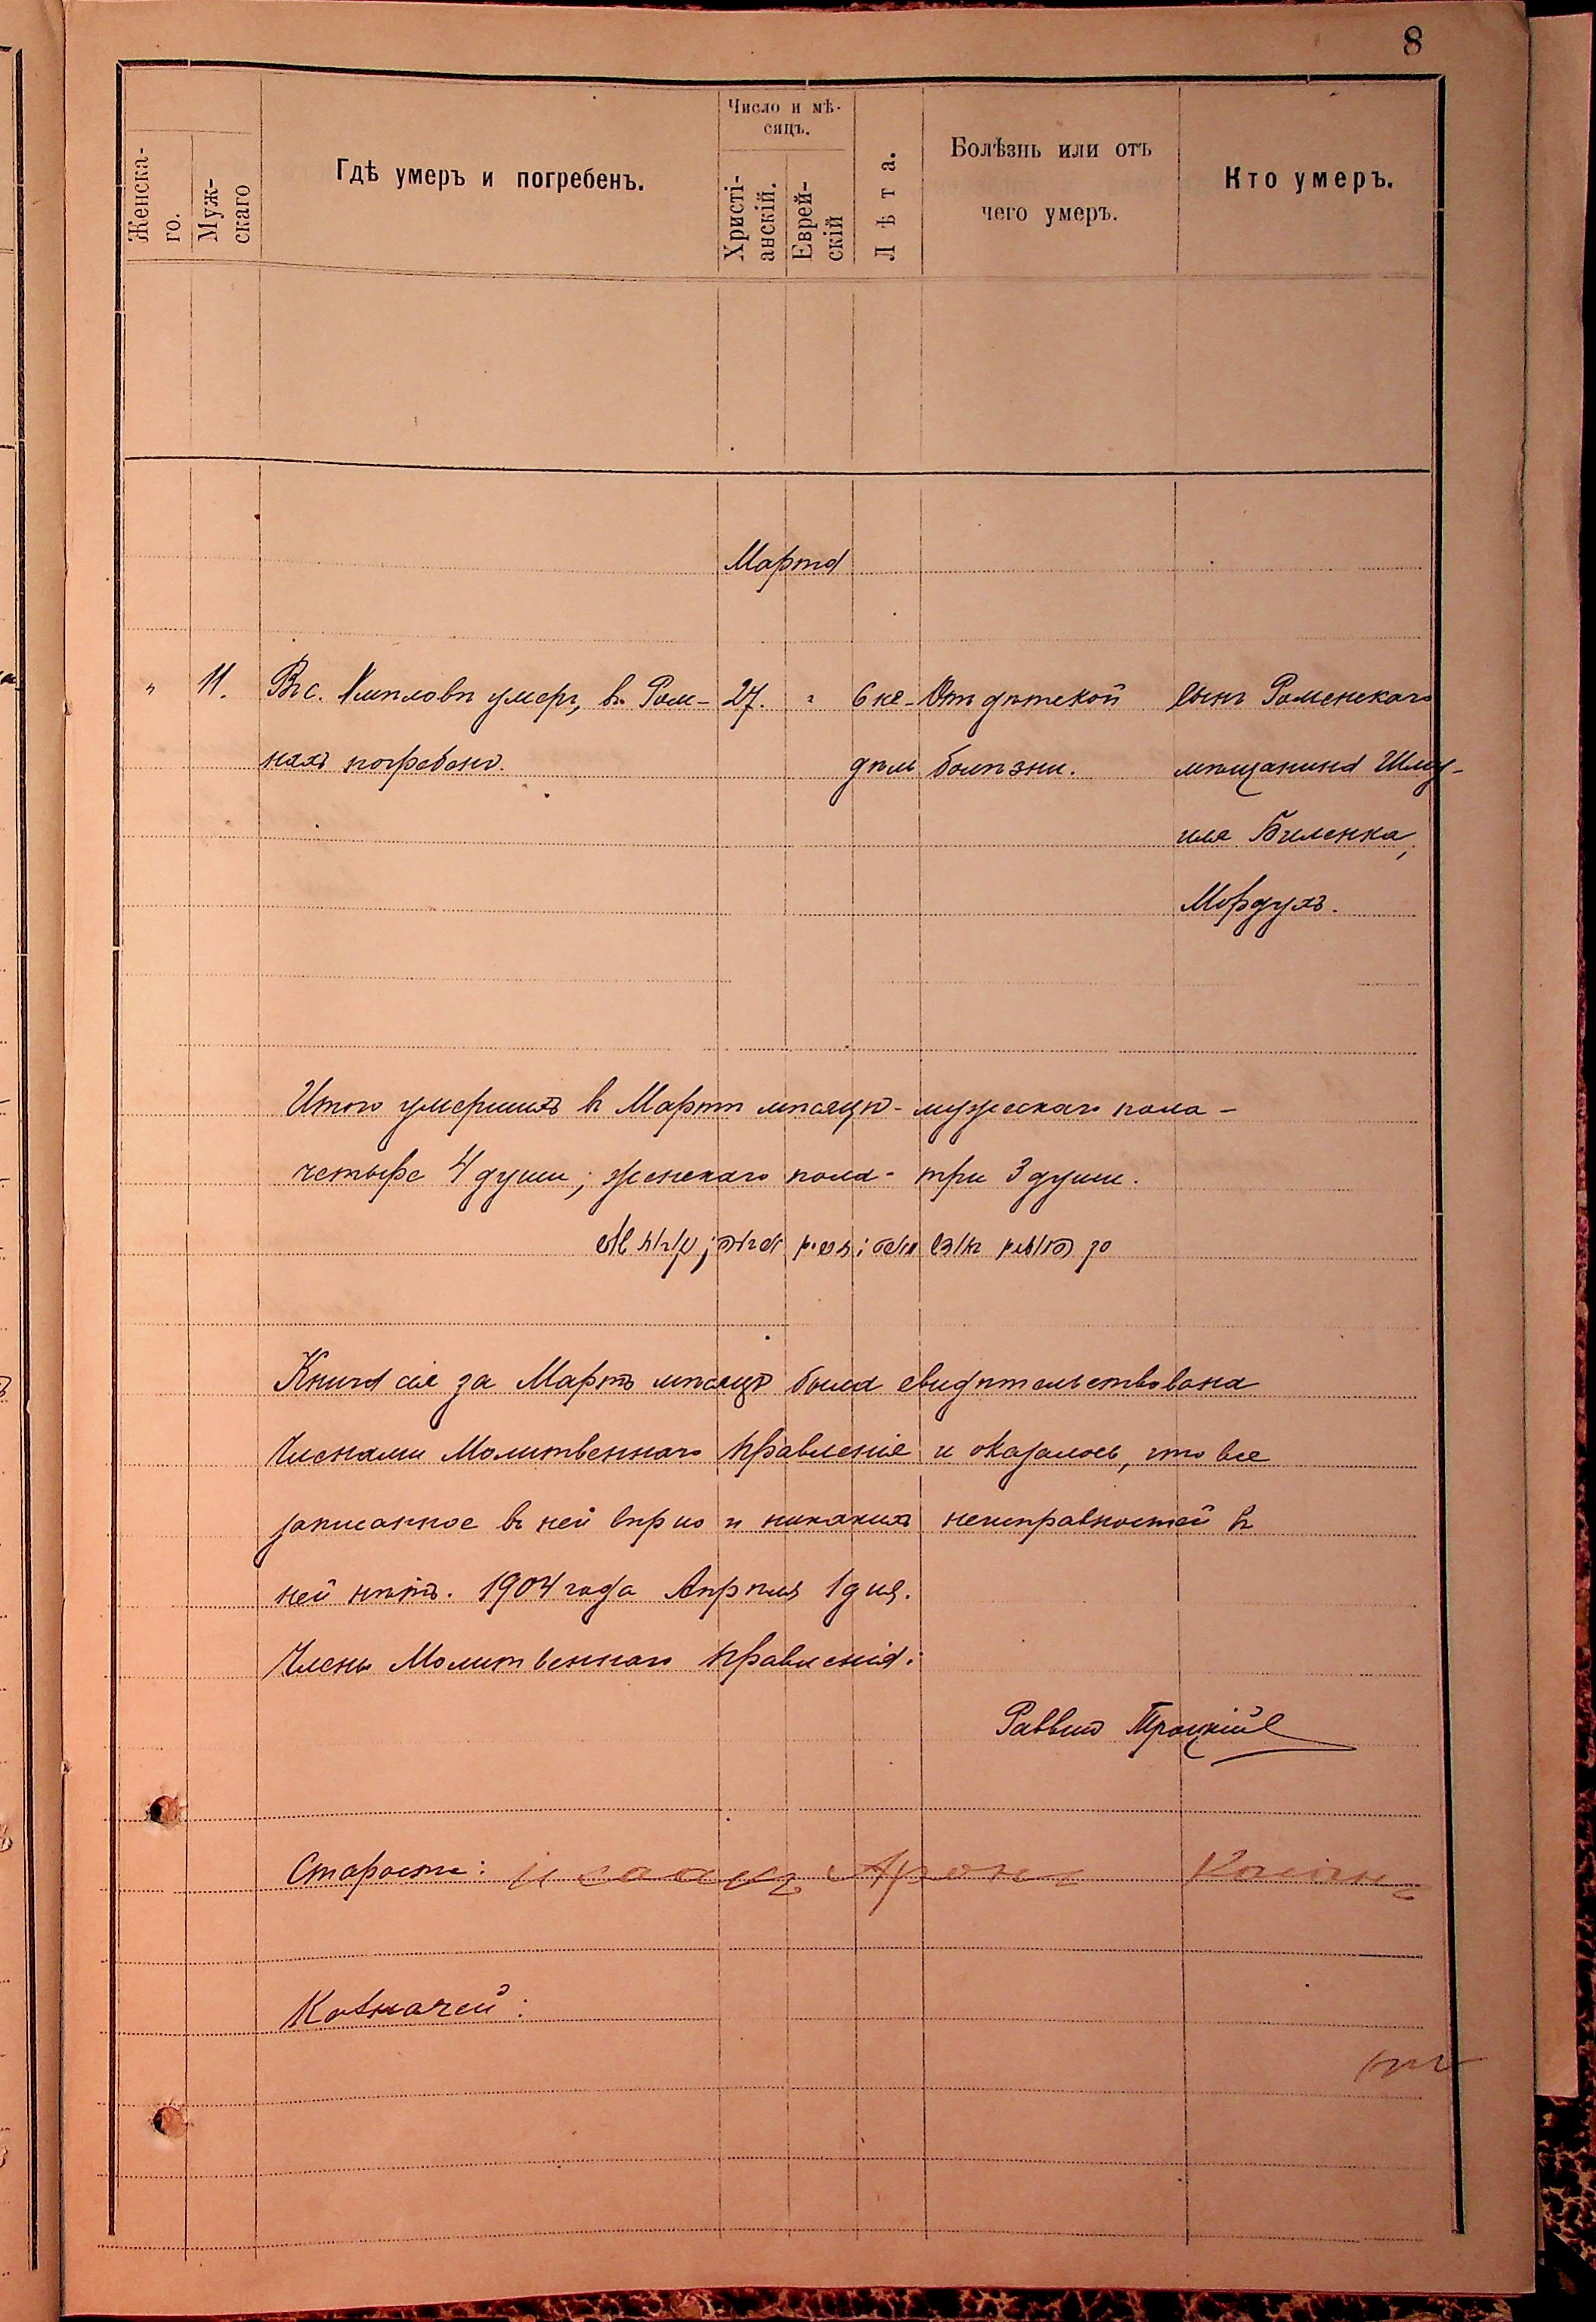 8
Женска-
го.
Муж-
скаго
Гдѣ умеръ и погребенъ.
Число и мѣ-
сяцъ.
Христі-
анскій.
Еврей-
скій
Лѣта.
Болѣзнь или отъ
чего умеръ.
Кто умеръ.
Марта
" 11. Въ с. умеръ, въ Ром- 27. " 6 не- Отъ дѣтской сынъ Роменскаго
нахъ погребенъ. дѣль болѣзни. мѣщанина Шму-
иля Биленка,
Мордухъ.
Итого умершихъ въ Мартѣ мѣсяцѣ - мужескаго пола -
четыре 4 души; женскаго пола - три 3 души.
Книга сія за Мартъ мѣсяцъ была свидѣтельствована
Членами Молитвеннаго Правленія и оказалось, что все
записанное въ ней вѣрно и никакихъ неисправностей въ
ней нѣтъ. 1904 года Апрѣля 1 дня.
Члены Молитвеннаго Правленія:
Раввинъ Троцкій
Староста: Исаакъ Аронъ
Казначей: